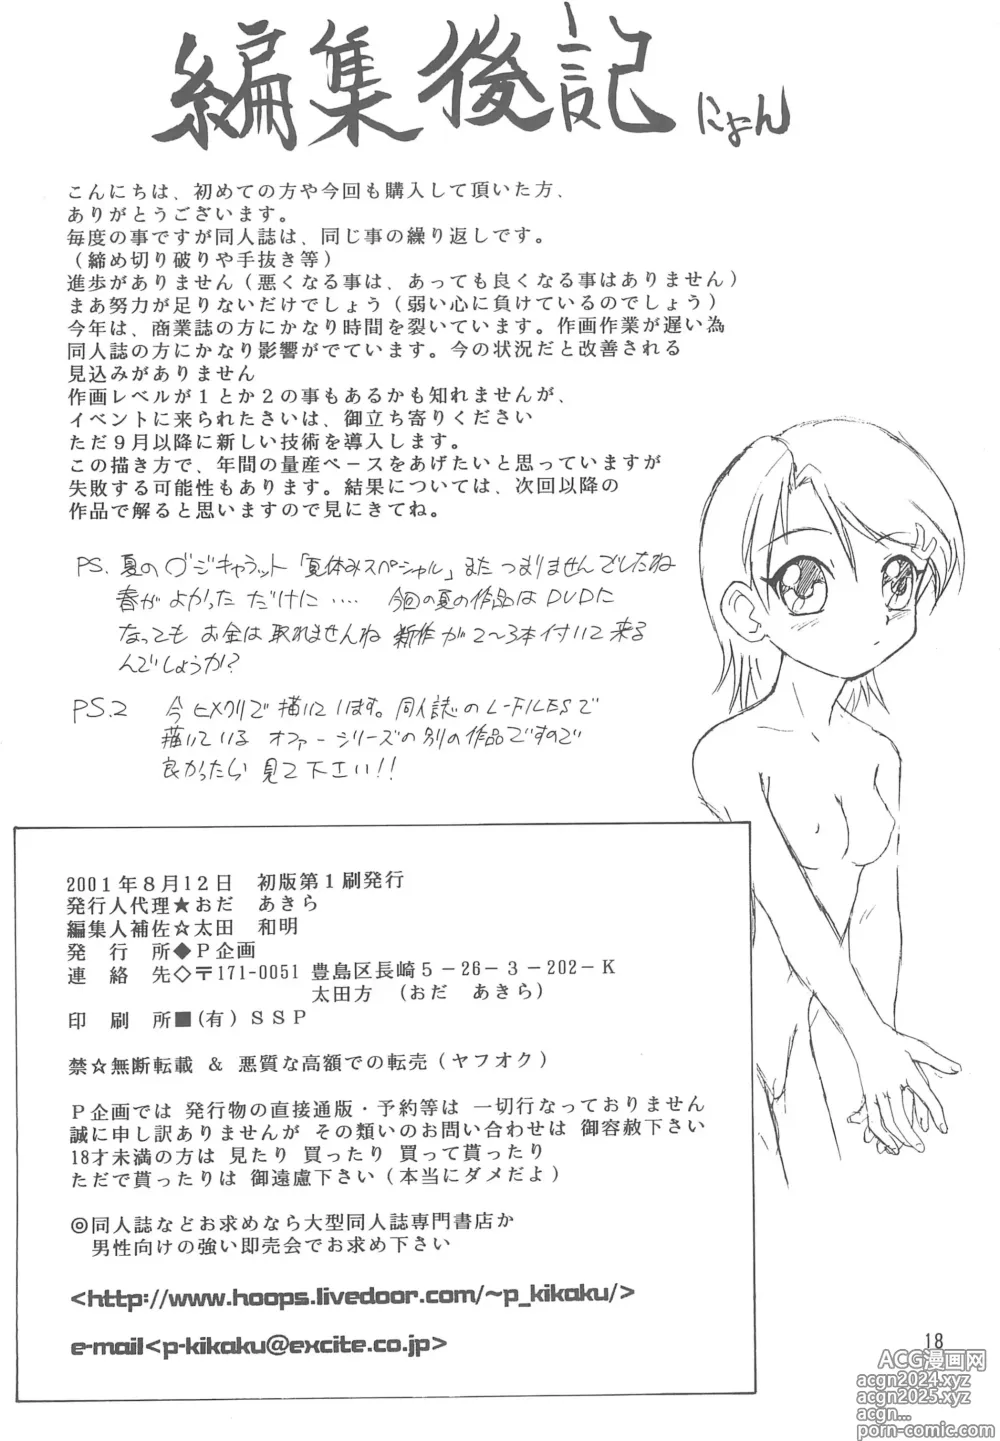 編集後記 にょん
こんにちは、初めての方や今回も購入して頂いた方、
ありがとうございます。
毎度の事ですが同人誌は、同じ事の繰り返しです。
（締め切り破りや手抜き等）
進歩がありません（悪くなる事は、あっても良くなる事はありません）
まあ努力が足りないだけでしょう（弱い心に負けているのでしょう）
今年は、商業誌の方にかなり時間を裂いています。作画作業が遅い為
同人誌の方にかなり影響がでています。今の状況だと改善される
見込みがありません
作画レベルが１とか２の事もあるかも知れませんが、
イベントに来られたさいは、御立ち寄りください
ただ９月以降に新しい技術を導入します。
この描き方で、年間の量産ペースをあげたいと思っていますが
失敗する可能性もあります。結果については、次回以降の
作品で解ると思いますので見にきてね。
PS. 夏のデジキャラット「夏休みスペシャル」またつまりませんでしたね
春がよかっただけに‥‥ 今回の夏の作品はDVDに
なってもお金は取れませんね 新作が2〜3本付いて来る
んでしょうか?
PS.2 今ヒメクリで描いています。同人誌のL-FILESで
描いている オファーシリーズの別の作品ですので
良かったら見て下さい!!
2001年８月12日　初版第１刷発行
発行人代理★おだ　あきら
編集人補佐☆太田　和明
発　行　所◆Ｐ企画
連　絡　先◇〒171-0051 豊島区長崎５－26－３－202－Ｋ
太田方　（おだ　あきら）
印　刷　所■(有）ＳＳＰ
禁☆無断転載 ＆ 悪質な高額での転売（ヤフオク）
Ｐ企画では 発行物の直接通版・予約等は 一切行なっておりません
誠に申し訳ありませんが その類いのお問い合わせは 御容赦下さい
18才未満の方は 見たり 買ったり 買って貰ったり
ただで貰ったりは 御遠慮下さい（本当にダメだよ）
◎同人誌などお求めなら大型同人誌専門書店か
男性向けの強い即売会でお求め下さい
<http://www.hoops.livedoor.com/~p_kikaku/>
e-mail<p-kikaku@excite.co.jp>
18
ACG漫画网
acgn2024.xyz
acgn2025.xyz
acgn...
porn-comic.com